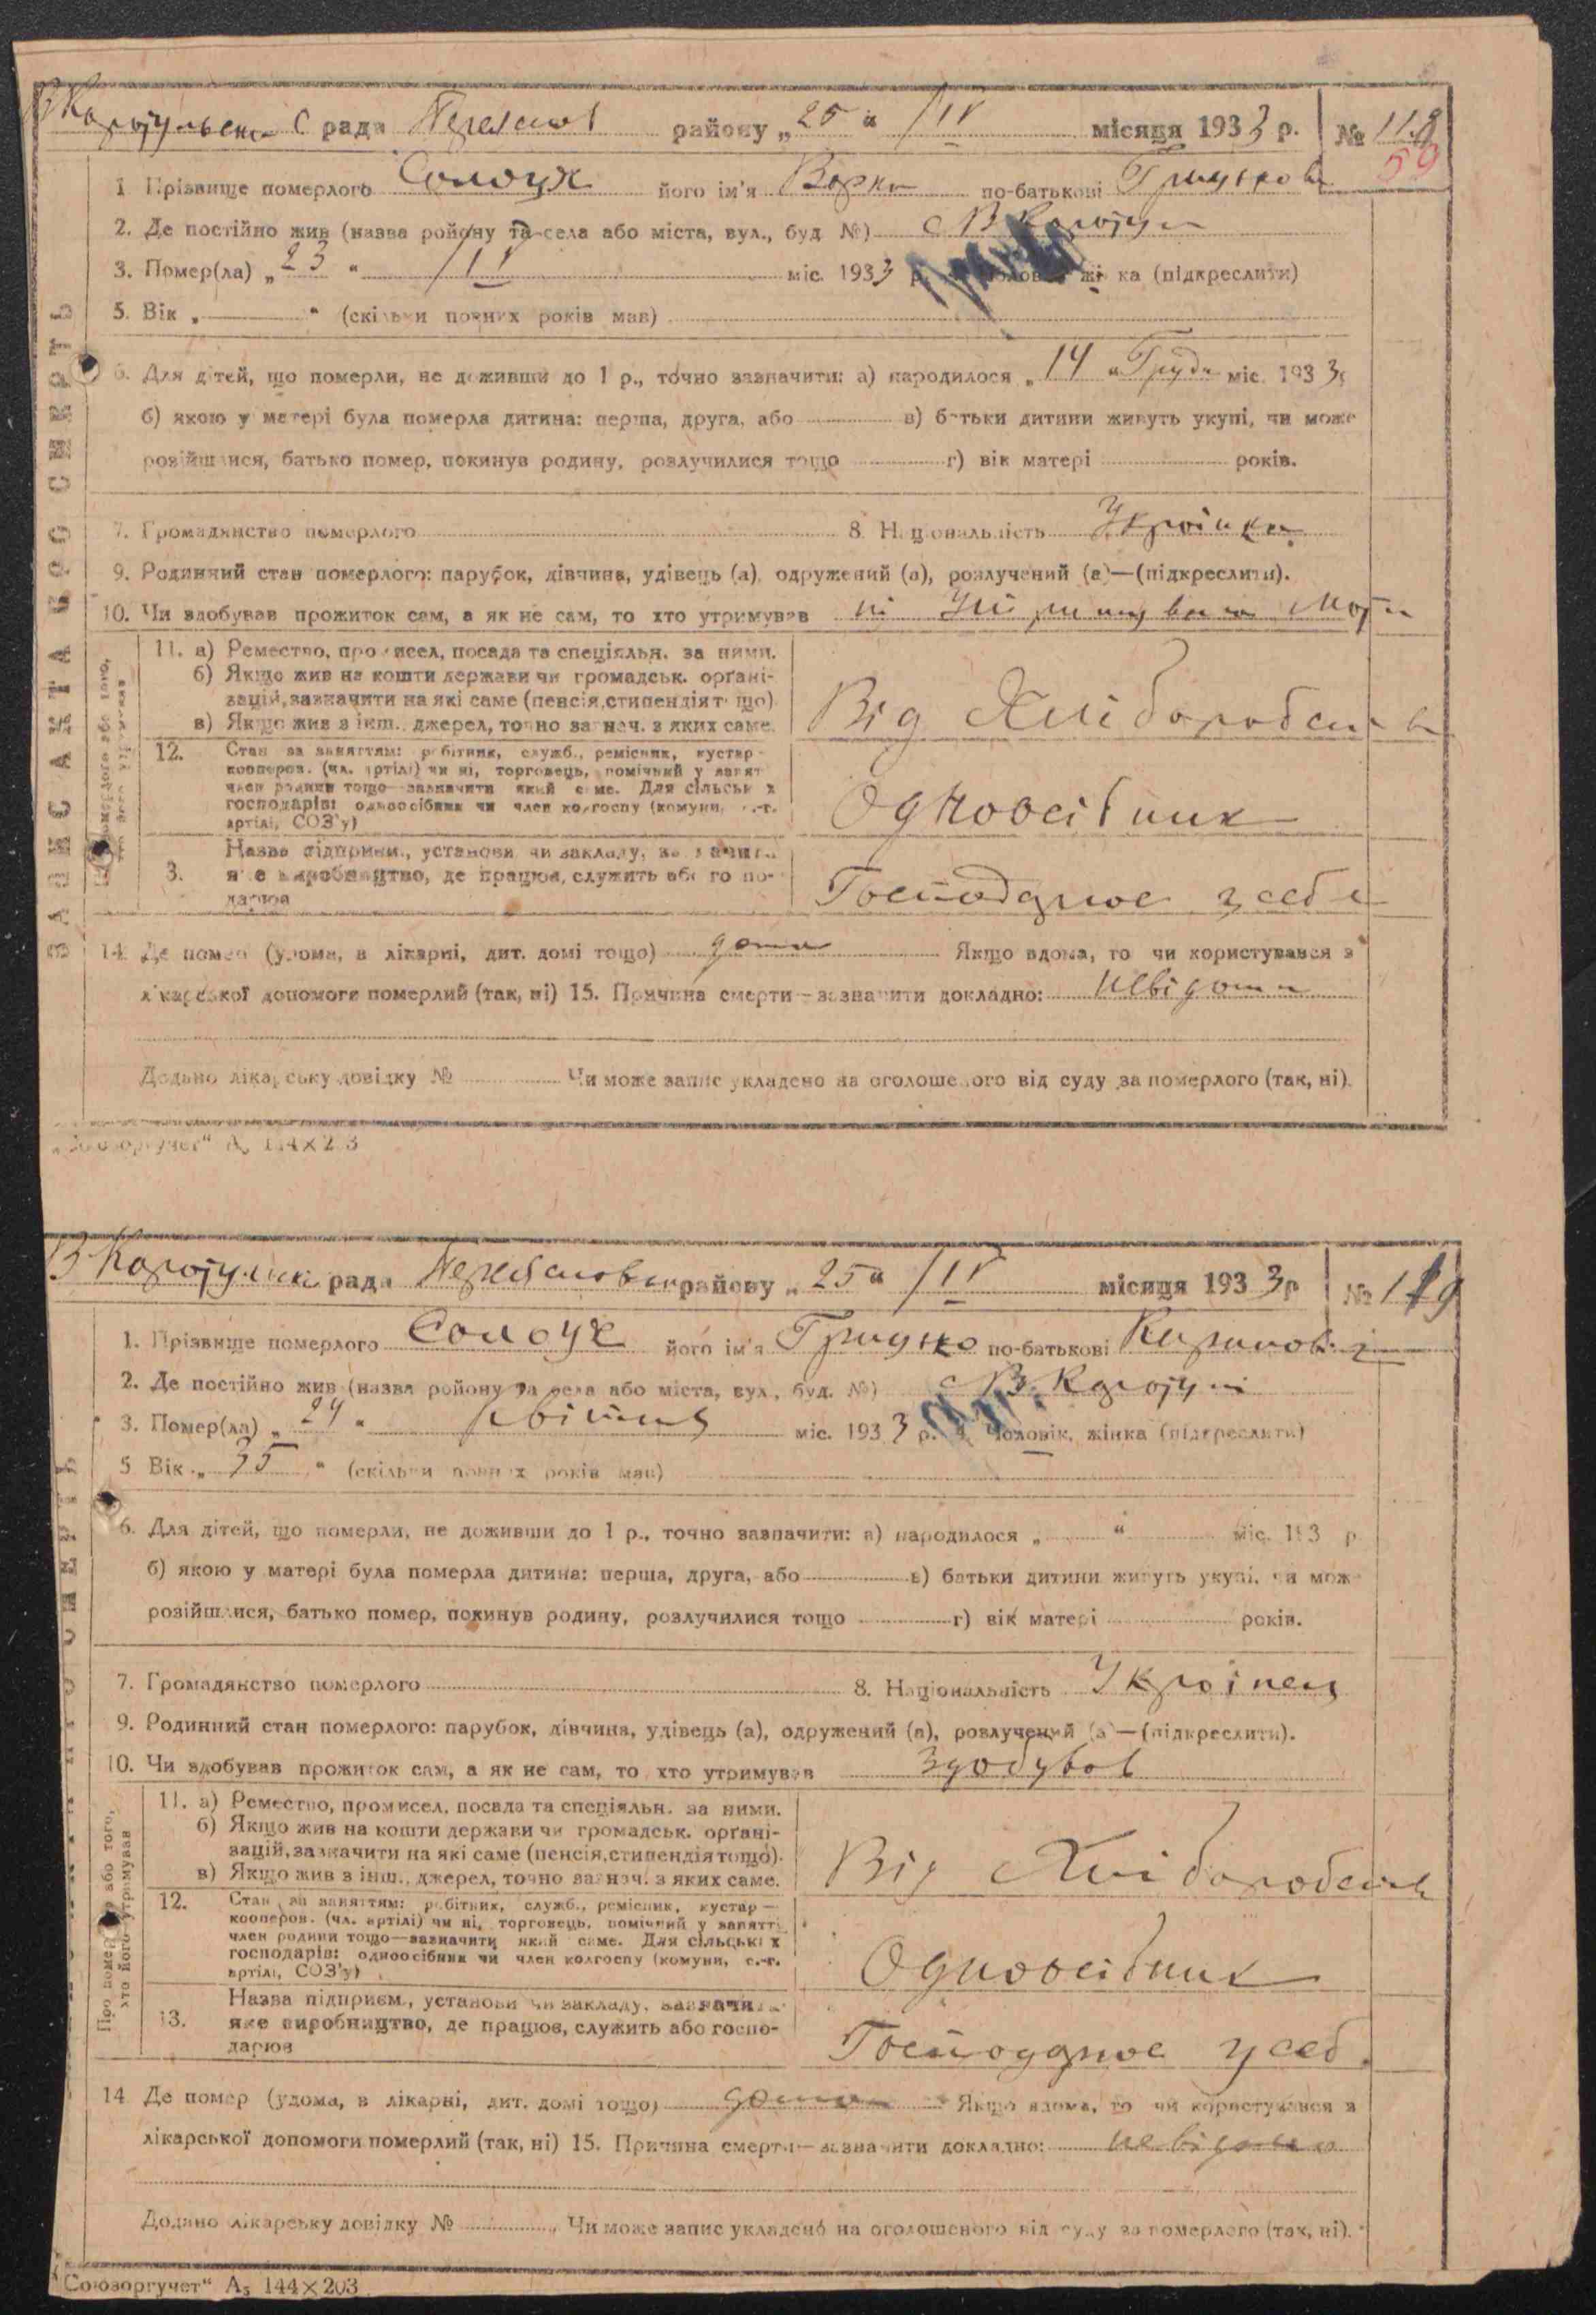 В Каратульська С рада Переяслов району „25“ /IV місяця 1933 р. № 118
59
1 Прізвище померлого Солоух його ім'я Варка по-батькові Грицькова
2. Де постійно жив (назва ройону та села або міста, вул., буд №) с В Каратул
3. Помер(ла) „23“ /IV міс. 1933 р. жінка (підкреслити)
5. Вік „ “ (скільки повних років мав)
6. Для дітей, що померли, не доживши до 1 р., точно зазначити: а) народилося „14“ Груд міс. 1933
б) якою у матері була померла дитина: перша, друга, або в) батьки дитини живуть укупі, чи може
розійшлися, батько помер, покинув родину, розлучилися тощо г) вік матері років.
7. Громадянство померлого 8. Національність Українка
9. Родинний стан померлого: парубок, дівчина, удівець (а), одружений (а), розлучений (а)—(підкреслити).
10. Чи здобував прожиток сам, а як не сам, то хто утримував ні Утримувала Мати
11. а) Ремество, промисел, посада та спеціяльн. за ними.
б) Якщо жив на кошти держави чи громадськ. орґані-
зацій, зазначити на які саме (пенсія, стипендія тощо)
в) Якщо жив з інш. джерел, точно зазнач. з яких саме.
Від Хліборобства
12. Стан за заняттям: робітник, служб., ремісник, кустар—
кооперов. (чл. артілі) чи ні, торговець, помічний у занят.
член родини тощо—зазначити який саме. Для сільських
господарів: одноосібник чи член колгоспу (комуни, с.-г.
артілі, СОЗ'у)
Одноосібник
Назва підприєм., установи чи закладу, зазначити
3. яке виробництво, де працює, служить або госпо-
дарює
Господарює у себе
14. Де помер (удома, в лікарні, дит. домі тощо) дома Якщо вдома, то чи користувався з
лікарської допомоги померлий (так, ні) 15. Причина смерти—зазначити докладно: невідома
Додано лікарську довідку № Чи може запис укладено на оголошеного від суду за померлого (так, ні).
„Союзоргучет“ А₅ 144×203
В Каратульська рада Переяславськ району „25“ /IV місяця 1933 р № 119
1. Прізвище померлого Солоух його ім'я Грицько по-батькові
2. Де постійно жив (назва ройону та села або міста, вул., буд. №) с В. Каратул
3. Помер(ла) „24“ квітня міс. 1933 р. 4. Чоловік, жінка (підкреслити)
5 Вік „35“ (скільки повних років мав)
6. Для дітей, що померли, не доживши до 1 р., точно зазначити: а) народилося „ “ міс. 193 р
б) якою у матері була померла дитина: перша, друга, або в) батьки дитини живуть укупі, чи може
розійшлися, батько помер, покинув родину, розлучилися тощо г) вік матері років.
7. Громадянство померлого 8. Національність Українець
9. Родинний стан померлого: парубок, дівчина, удівець (а), одружений (а), розлучений (а)—(підкреслити).
10. Чи здобував прожиток сам, а як не сам, то хто утримував здобував
Про померлого або того, хто його утримував
11. а) Ремество, промисел, посада та спеціяльн. за ними.
б) Якщо жив на кошти держави чи громадськ. орґані-
зацій, зазначити на які саме (пенсія, стипендія тощо).
в) Якщо жив з інш. джерел, точно зазнач. з яких саме.
Від Хліборобства
12. Стан за заняттям: робітник, служб., ремісник, кустар—
кооперов. (чл. артілі) чи ні, торговець, помічний у занятті
член родини тощо—зазначити який саме. Для сільських
господарів: одноосібник чи член колгоспу (комуни, с.-г.
артілі, СОЗ'у)
Одноосібник
Назва підприєм., установи чи закладу, зазначити
13. яке виробництво, де працює, служить або госпо-
дарює
Господарює у себ
14 Де помер (удома, в лікарні, дит. домі тощо) дома Якщо вдома, то чи користувався з
лікарської допомоги померлий (так, ні) 15. Причина смерти—зазначити докладно: невідома
Додано лікарську довідку № Чи може запис укладено на оголошеного від суду за померлого (так, ні).
„Союзоргучет“ А₅ 144×203